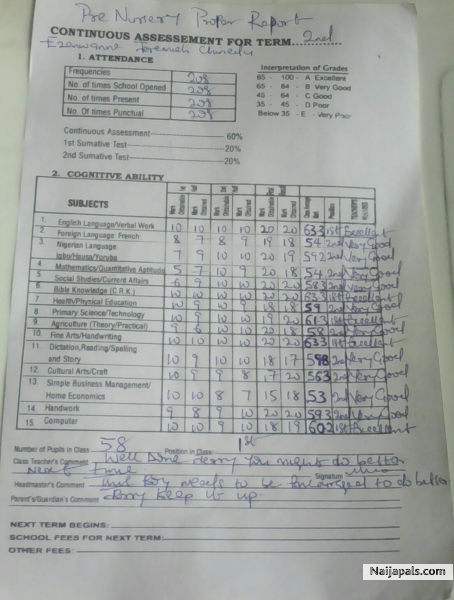 Pre Nursery Proper Report
CONTINUOUS ASSESSEMENT FOR TERM...2nd
Jeremiah
1. ATTENDANCE
Interpretation of Grades
Frequencies 208
No. of times School Opened 208
No. of times Present 208
No. Of times Punctual 208
85 - 100 - A Excellent
65 - 84 - B Very Good
45 - 64 - C Good
35 - 45 - D Poor
Below 35 - E - Very Poor
Continuous Assessment 60%
1st Sumative Test 20%
2nd Sumative Test 20%
2. COGNITIVE ABILITY
SUBJECTS
1. English Language/Verbal Work 10 10 10 10 20 20 633 1st Excellent
2. Foreign Language: French 8 7 8 9 19 18 54 2nd Very Good
3. Nigerian Language
Igbo/Hausa/Yuruba 7 9 10 10 20 19 592 2nd Very Good
4. Mathematics/Quantitative Aptitude 5 7 10 9 20 18 54 2nd Very Good
5. Social Studies/Current Affairs 6 9 10 10 20 20 583 2nd Very Good
6. Bible Knowledge (C.R.K.) 10 10 10 10 20 20 633 1st Excellent
7. Health/Physical Education 10 9 10 9 18 18 59 2nd Very Good
8. Primary Science/Technology 10 9 10 10 19 20 613 1st Excellent
9. Agriculture (Theory/Practical) 9 6 10 10 20 18 58 2nd Very Good
10. Fine Arts/Handwriting 10 10 10 10 20 20 633 1st Excellent
11. Dictation,Reading/Spelling
and Story 10 9 10 10 18 17 598 2nd Very Good
12. Cultural Arts/Craft 10 9 9 8 17 20 563 2nd Very Good
13. Simple Business Management/
Home Economics 10 10 8 7 15 18 53 2nd Very Good
14. Handwork 9 8 9 10 20 20 593 2nd Very Good
15. Computer 10 10 9 10 18 19 602 1st Excellent
Number of Pupils in Class 58 Position in Class 1st
Class Teacher's Comment Well Done derry You might do better
Next time. Signature
Headmaster's Comment this boy needs to be encouraged to do better
Parent's/Guardian's Comment derry keep it up.
NEXT TERM BEGINS:
SCHOOL FEES FOR NEXT TERM:
OTHER FEES:
Naijapals.com